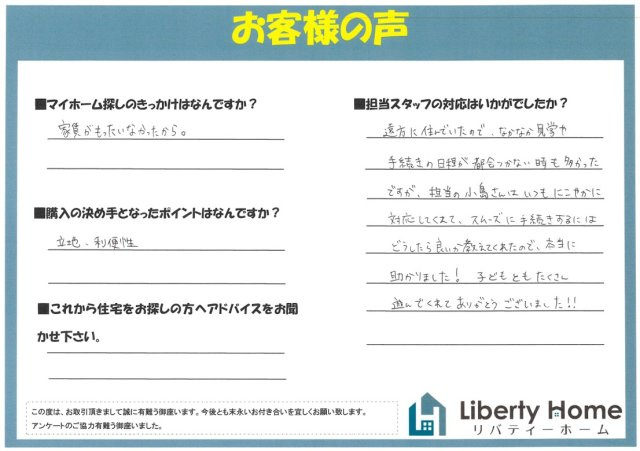 お客様の声
■マイホーム探しのきっかけはなんですか？
家賃がもったいなかったから。
■購入の決め手となったポイントはなんですか？
立地・利便性
■これから住宅をお探しの方へアドバイスをお聞
かせ下さい。
■担当スタッフの対応はいかがでしたか？
遠方に住んでいたので、なかなか見学や
手続きの日程が都合つかない時も多かった
ですが、担当の小島さんはいつもにこやかに
対応してくれて、スムーズに手続きするには
どうしたら良いか教えてくれたので、本当に
助かりました！ 子どもともたくさん
遊んでくれてありがとうございました!!
この度は、お取引頂きまして誠に有難う御座います。今後とも末永いお付き合いを宜しくお願い致します。
アンケートのご協力有難う御座いました。
Liberty Home
リバティーホーム